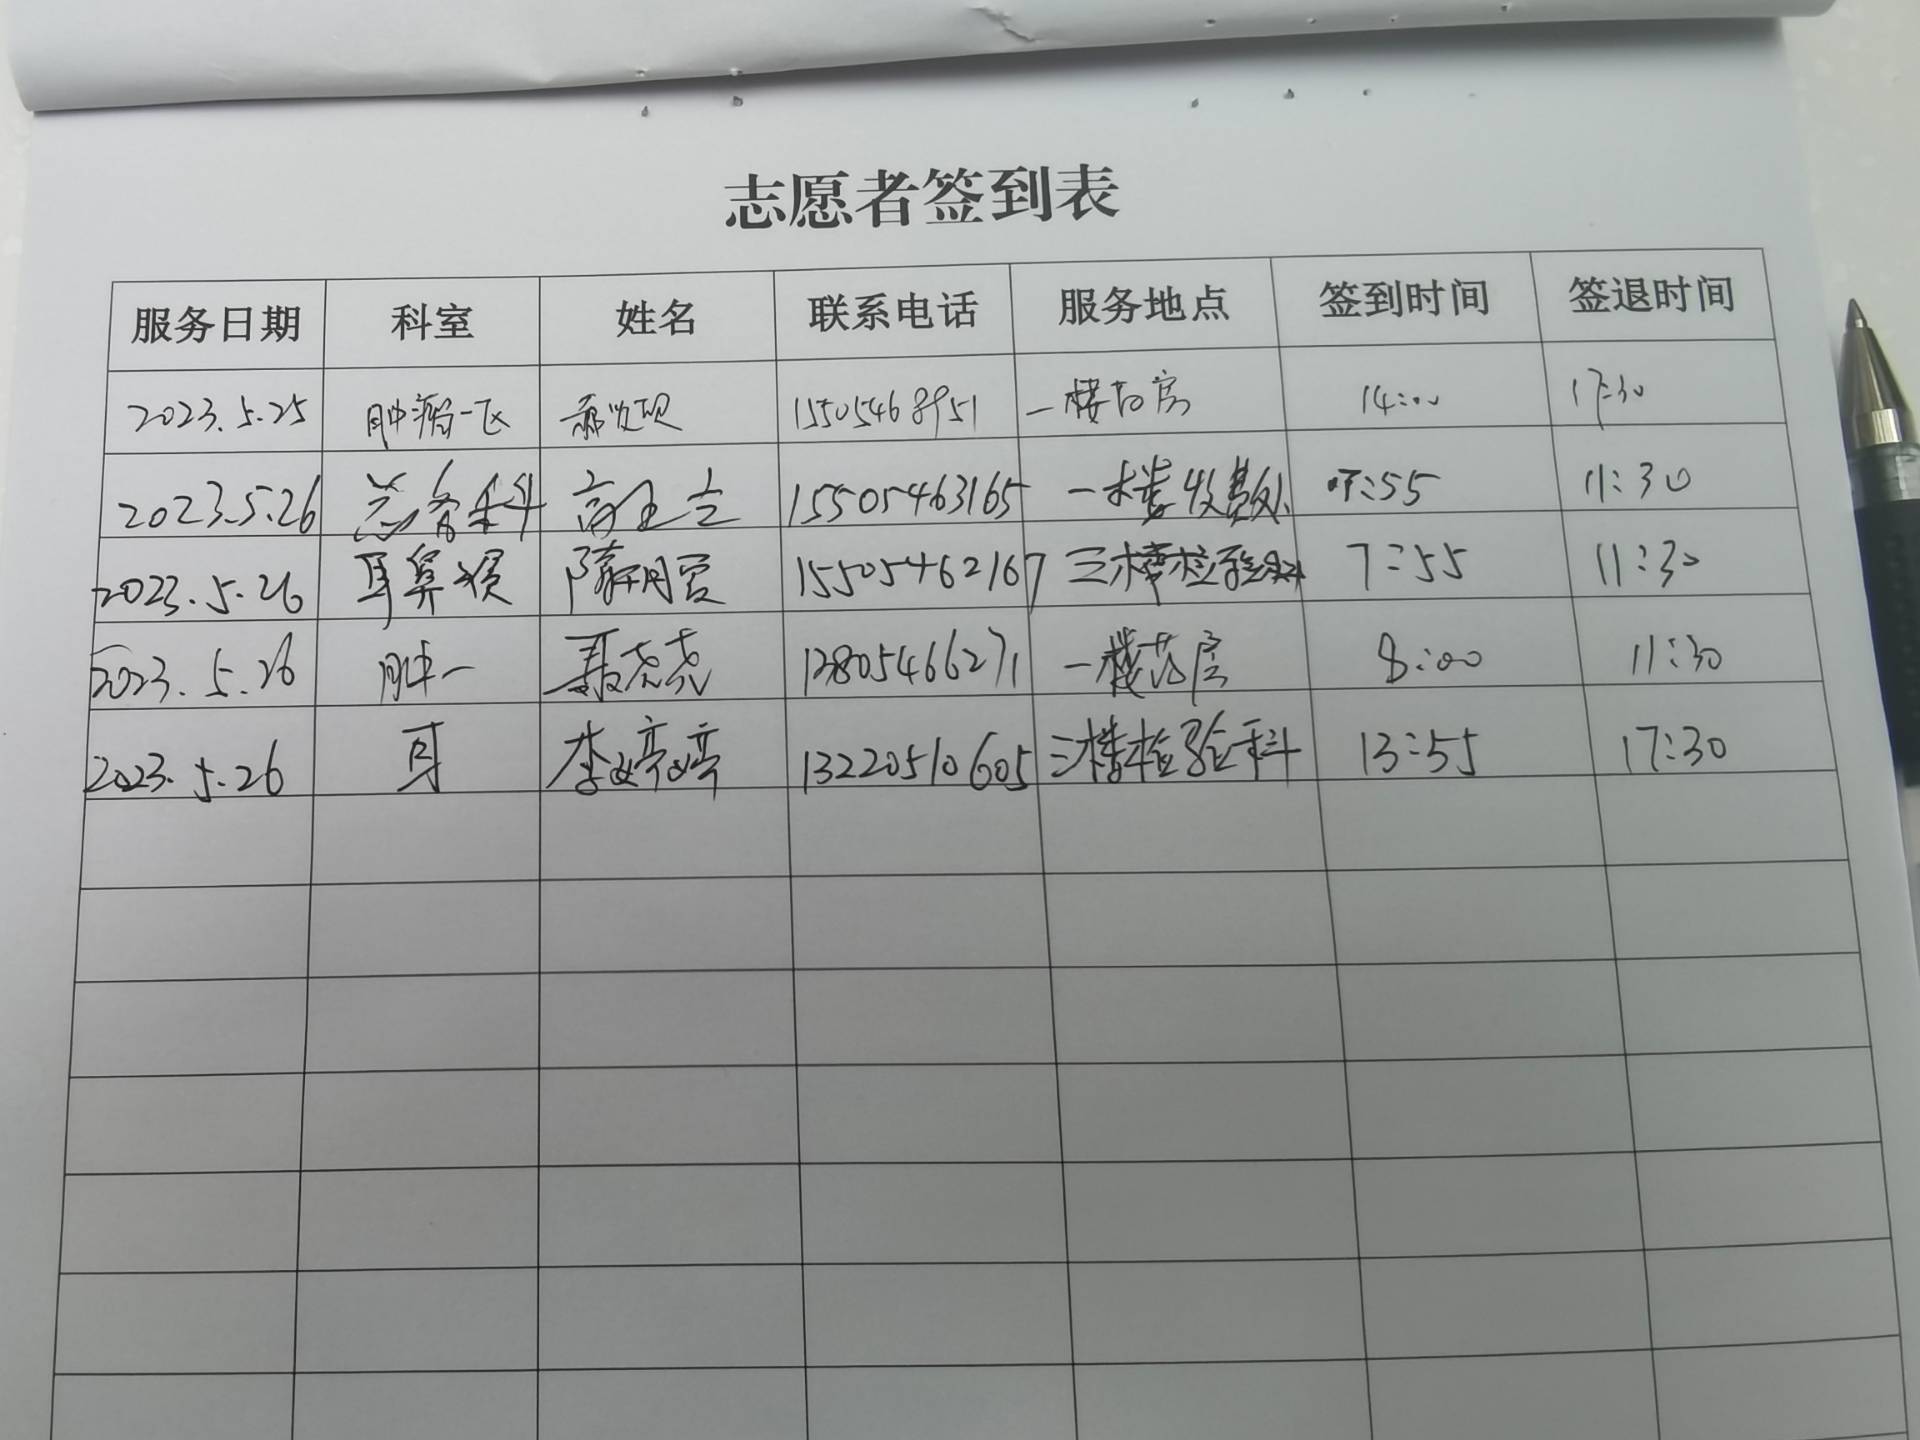 志愿者签到表
服务日期 科室 姓名 联系电话 服务地点 签到时间 签退时间
2023.5.25 肿瘤一区 15505468951 一楼药房 14:00 17:30
2023.5.26 科 高 15505463165 一楼收费处 7:55 11:30
2023.5.26 耳鼻喉 隋明 15505462167 三楼检验科 7:55 11:30
2023.5.26 肿一 聂尧尧 13805466271 一楼药房 8:00 11:30
2023.5.26 耳 李婷婷 13220510605 三楼检验科 13:55 17:30